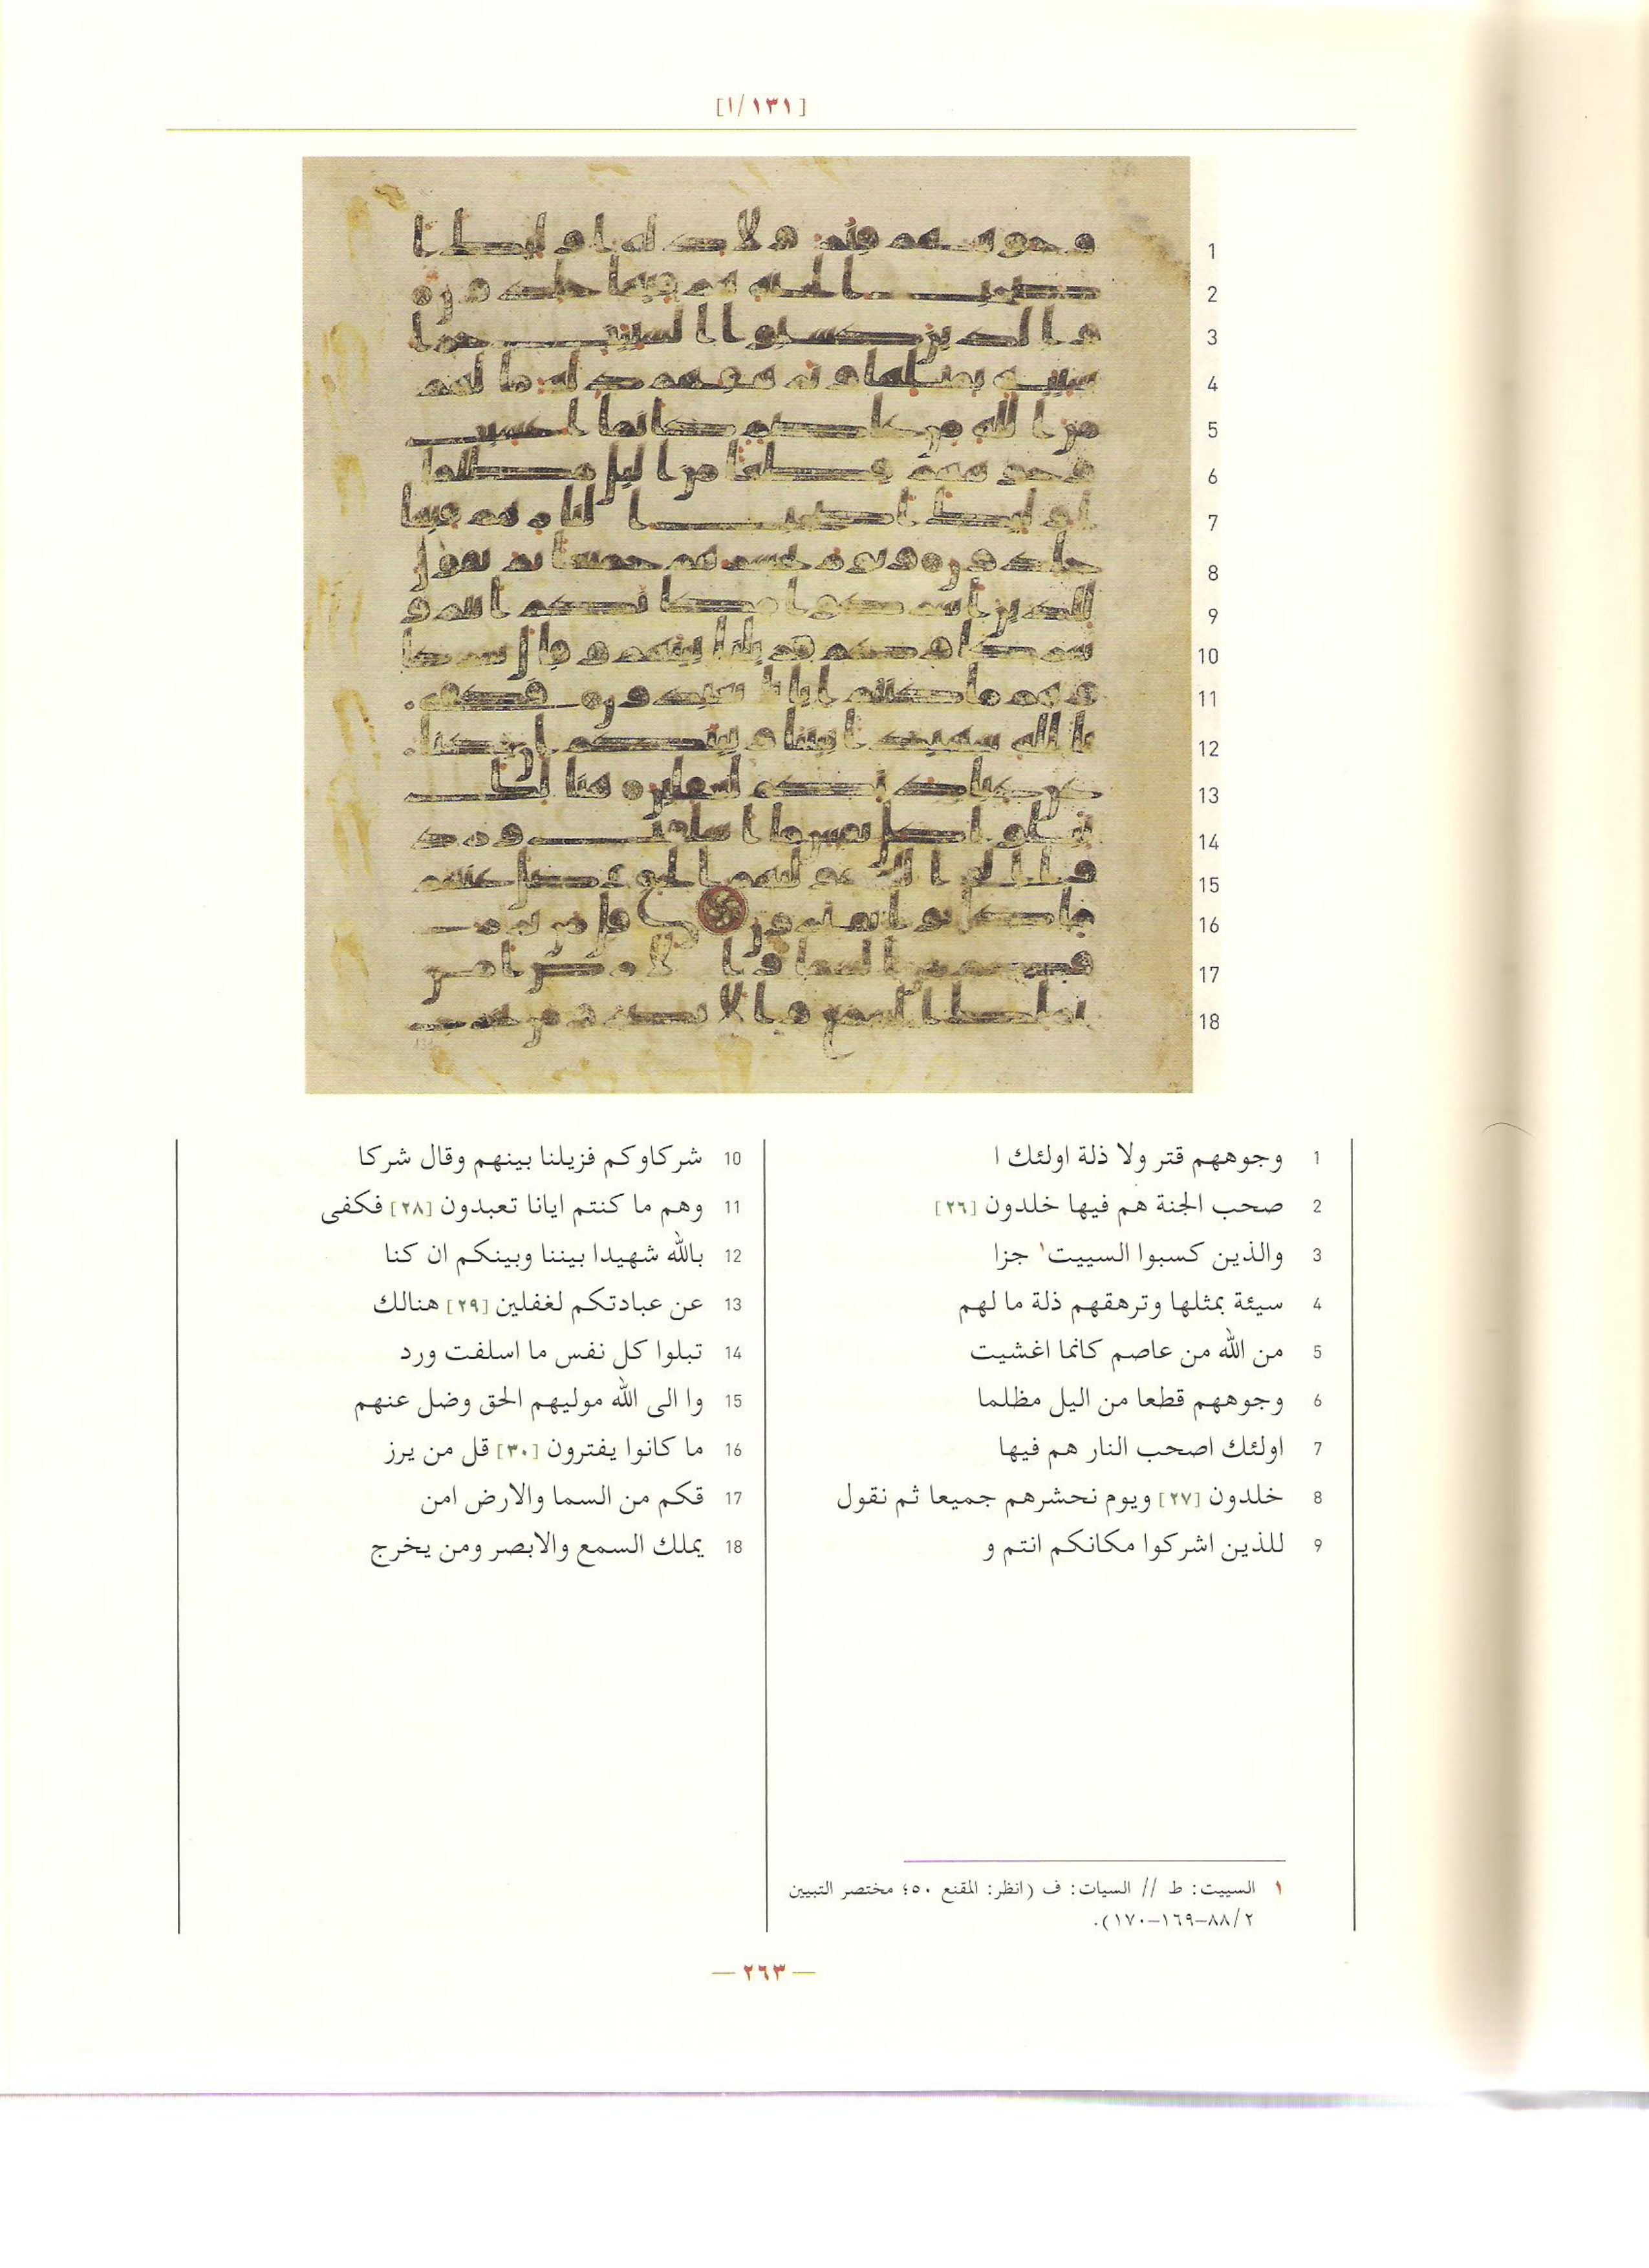 [١/١٣١]
1
2
3
4
5
6
7
8
9
10
11
12
13
14
15
16
17
18
1 وجوههم قتر ولا ذلة اولئك ا
2 صحب الجنة هم فيها خلدون [٢٦]
3 والذين كسبوا السييت١ جزا
4 سيئة بمثلها وترهقهم ذلة ما لهم
5 من الله من عاصم كانما اغشيت
6 وجوههم قطعا من اليل مظلما
7 اولئك اصحب النار هم فيها
8 خلدون [٢٧] ويوم نحشرهم جميعا ثم نقول
9 للذين اشركوا مكانكم انتم و
10 شركاوكم فزيلنا بينهم وقال شركا
11 وهم ما كنتم ايانا تعبدون [٢٨] فكفى
12 بالله شهيدا بيننا وبينكم ان كنا
13 عن عبادتكم لغفلين [٢٩] هنالك
14 تبلوا كل نفس ما اسلفت ورد
15 وا الى الله موليهم الحق وضل عنهم
16 ما كانوا يفترون [٣٠] قل من يرز
17 قكم من السما والارض امن
18 يملك السمع والابصر ومن يخرج
١ السييت: ط // السيات: ف (انظر: المقنع ٥٠؛ مختصر التبيين
٢/٨٨–١٦٩–١٧٠).
— ٢٦٣ —